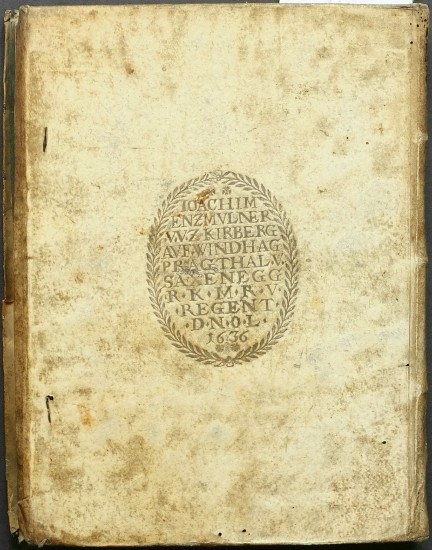 IOACHIM
ENZMVLNER
V.V.Z KIRBERG
AVF.WINDHAG
PRAGTHAL.V.
SAXENEGG
R·K·M·R·V
·REGENT·
·D·N·O·L·
1636